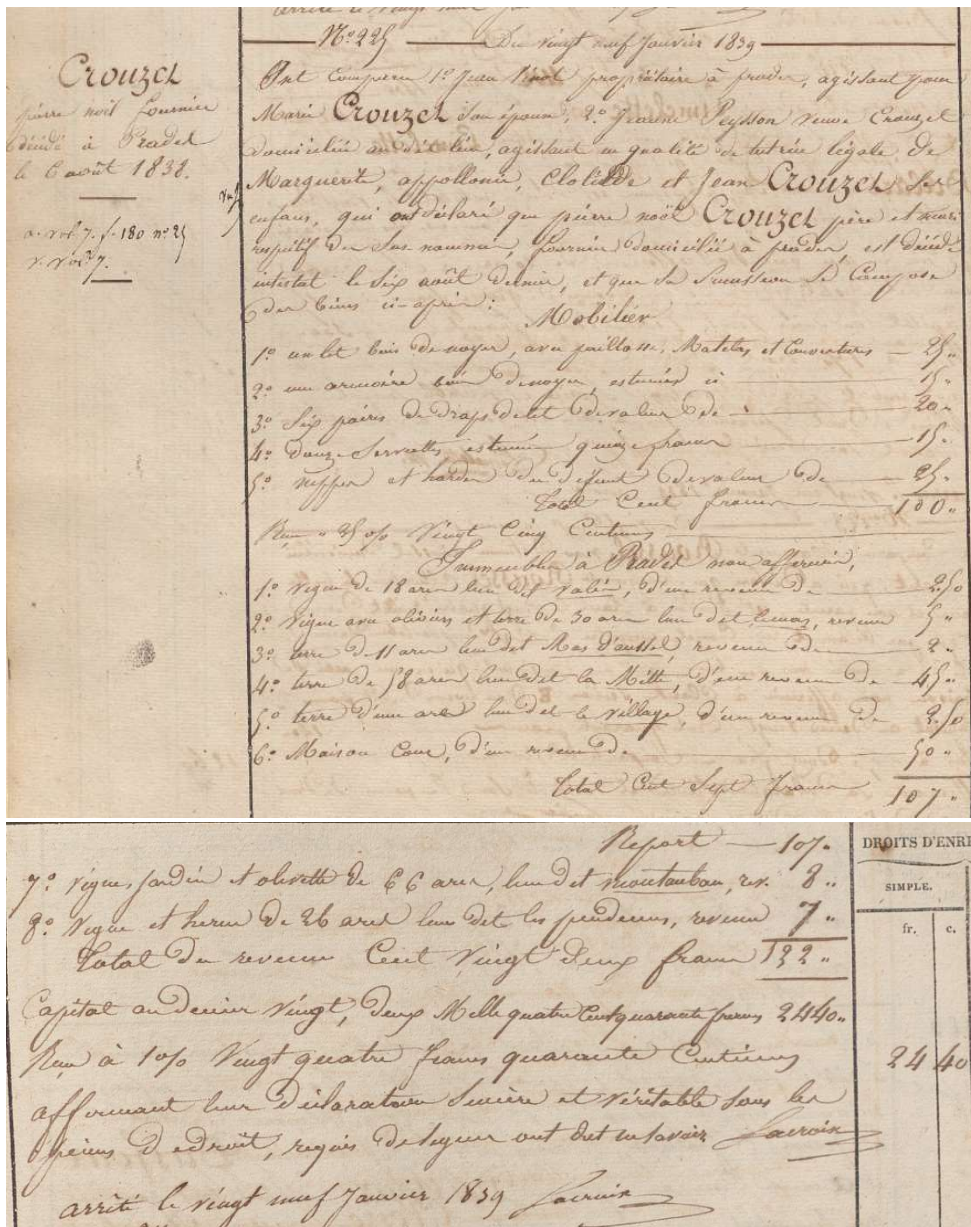 N° 225 Du vingt neuf Janvier 1839
Crouzet
pierre noël fournier
décédé à Pradel
le 6 août 1838.
a. vol. 7. f. 180 n° 25
v. vol. 7.
Ont comparu 1° Jean propriétaire à prades, agissant pour
Marie Crouzet son épouse, 2° Jeanne Peysson veuve Crouzet
domiciliée au dit lieu, agissant en qualité de tutrice légale de
Marguerite, appollonie, Clotilde et Jean Crouzet ses
enfans, qui ont déclaré que pierre noël Crouzet père et mari
respectif des sus-nommés, fournier domicilié à prades, est décédé
intestat le six août dernier, et que sa succession se compose
des biens ci-après :
Mobilier
1° un lit bois de noyer, avec paillasse, Matelas et Couvertures — 25 "
2° une armoire bois de noyer, estimée ci — 15 "
3° Six paires de draps de lit de valeur de — 20 "
4° douze Serviettes estimées quinze francs — 15 "
5° nippes et hardes du défunt de valeur de — 25 "
Total Cent francs 100 "
Reçu " 25 o/o Vingt Cinq Centimes
Immeubles à Pradel non affermés,
1° vigne de 18 ares lieu dit valén, d'une revenu de — 2 50
2° vigne avec oliviers et terre de 30 ares lieu dit, revenu 5 "
3° terre de 11 ares lieu dit Mas d'aussel, revenu de — 2 "
4° terre de 58 ares lieu dit la Mitte, d'un revenu de — 45 "
5° terre d'une are lieu dit le village, d'un revenu de 2.50
6° Maison Cour, d'un revenu de — 50 "
Total Cent Sept francs 107 "
Report — 107 "
DROITS D'ENRE
SIMPLE.
fr. c.
7° vigne, jardin et olivette de 66 ares, lieu dit montauban, rev. 8 "
8° vigne et herm de 26 ares lieu dit les, revenu 7 "
Total du revenu Cent vingt deux francs 122 "
Capital au denier vingt, deux Mille quatre Cent quarante francs 2440 "
Reçu à 1 o/o Vingt quatre francs quarante Centimes 24 40
affirmant leur déclaration sincère et véritable sous les
peines de droit, requis de signer ont dit ne savoir Lacroix
arrêté le vingt neuf Janvier 1839 Lacroix